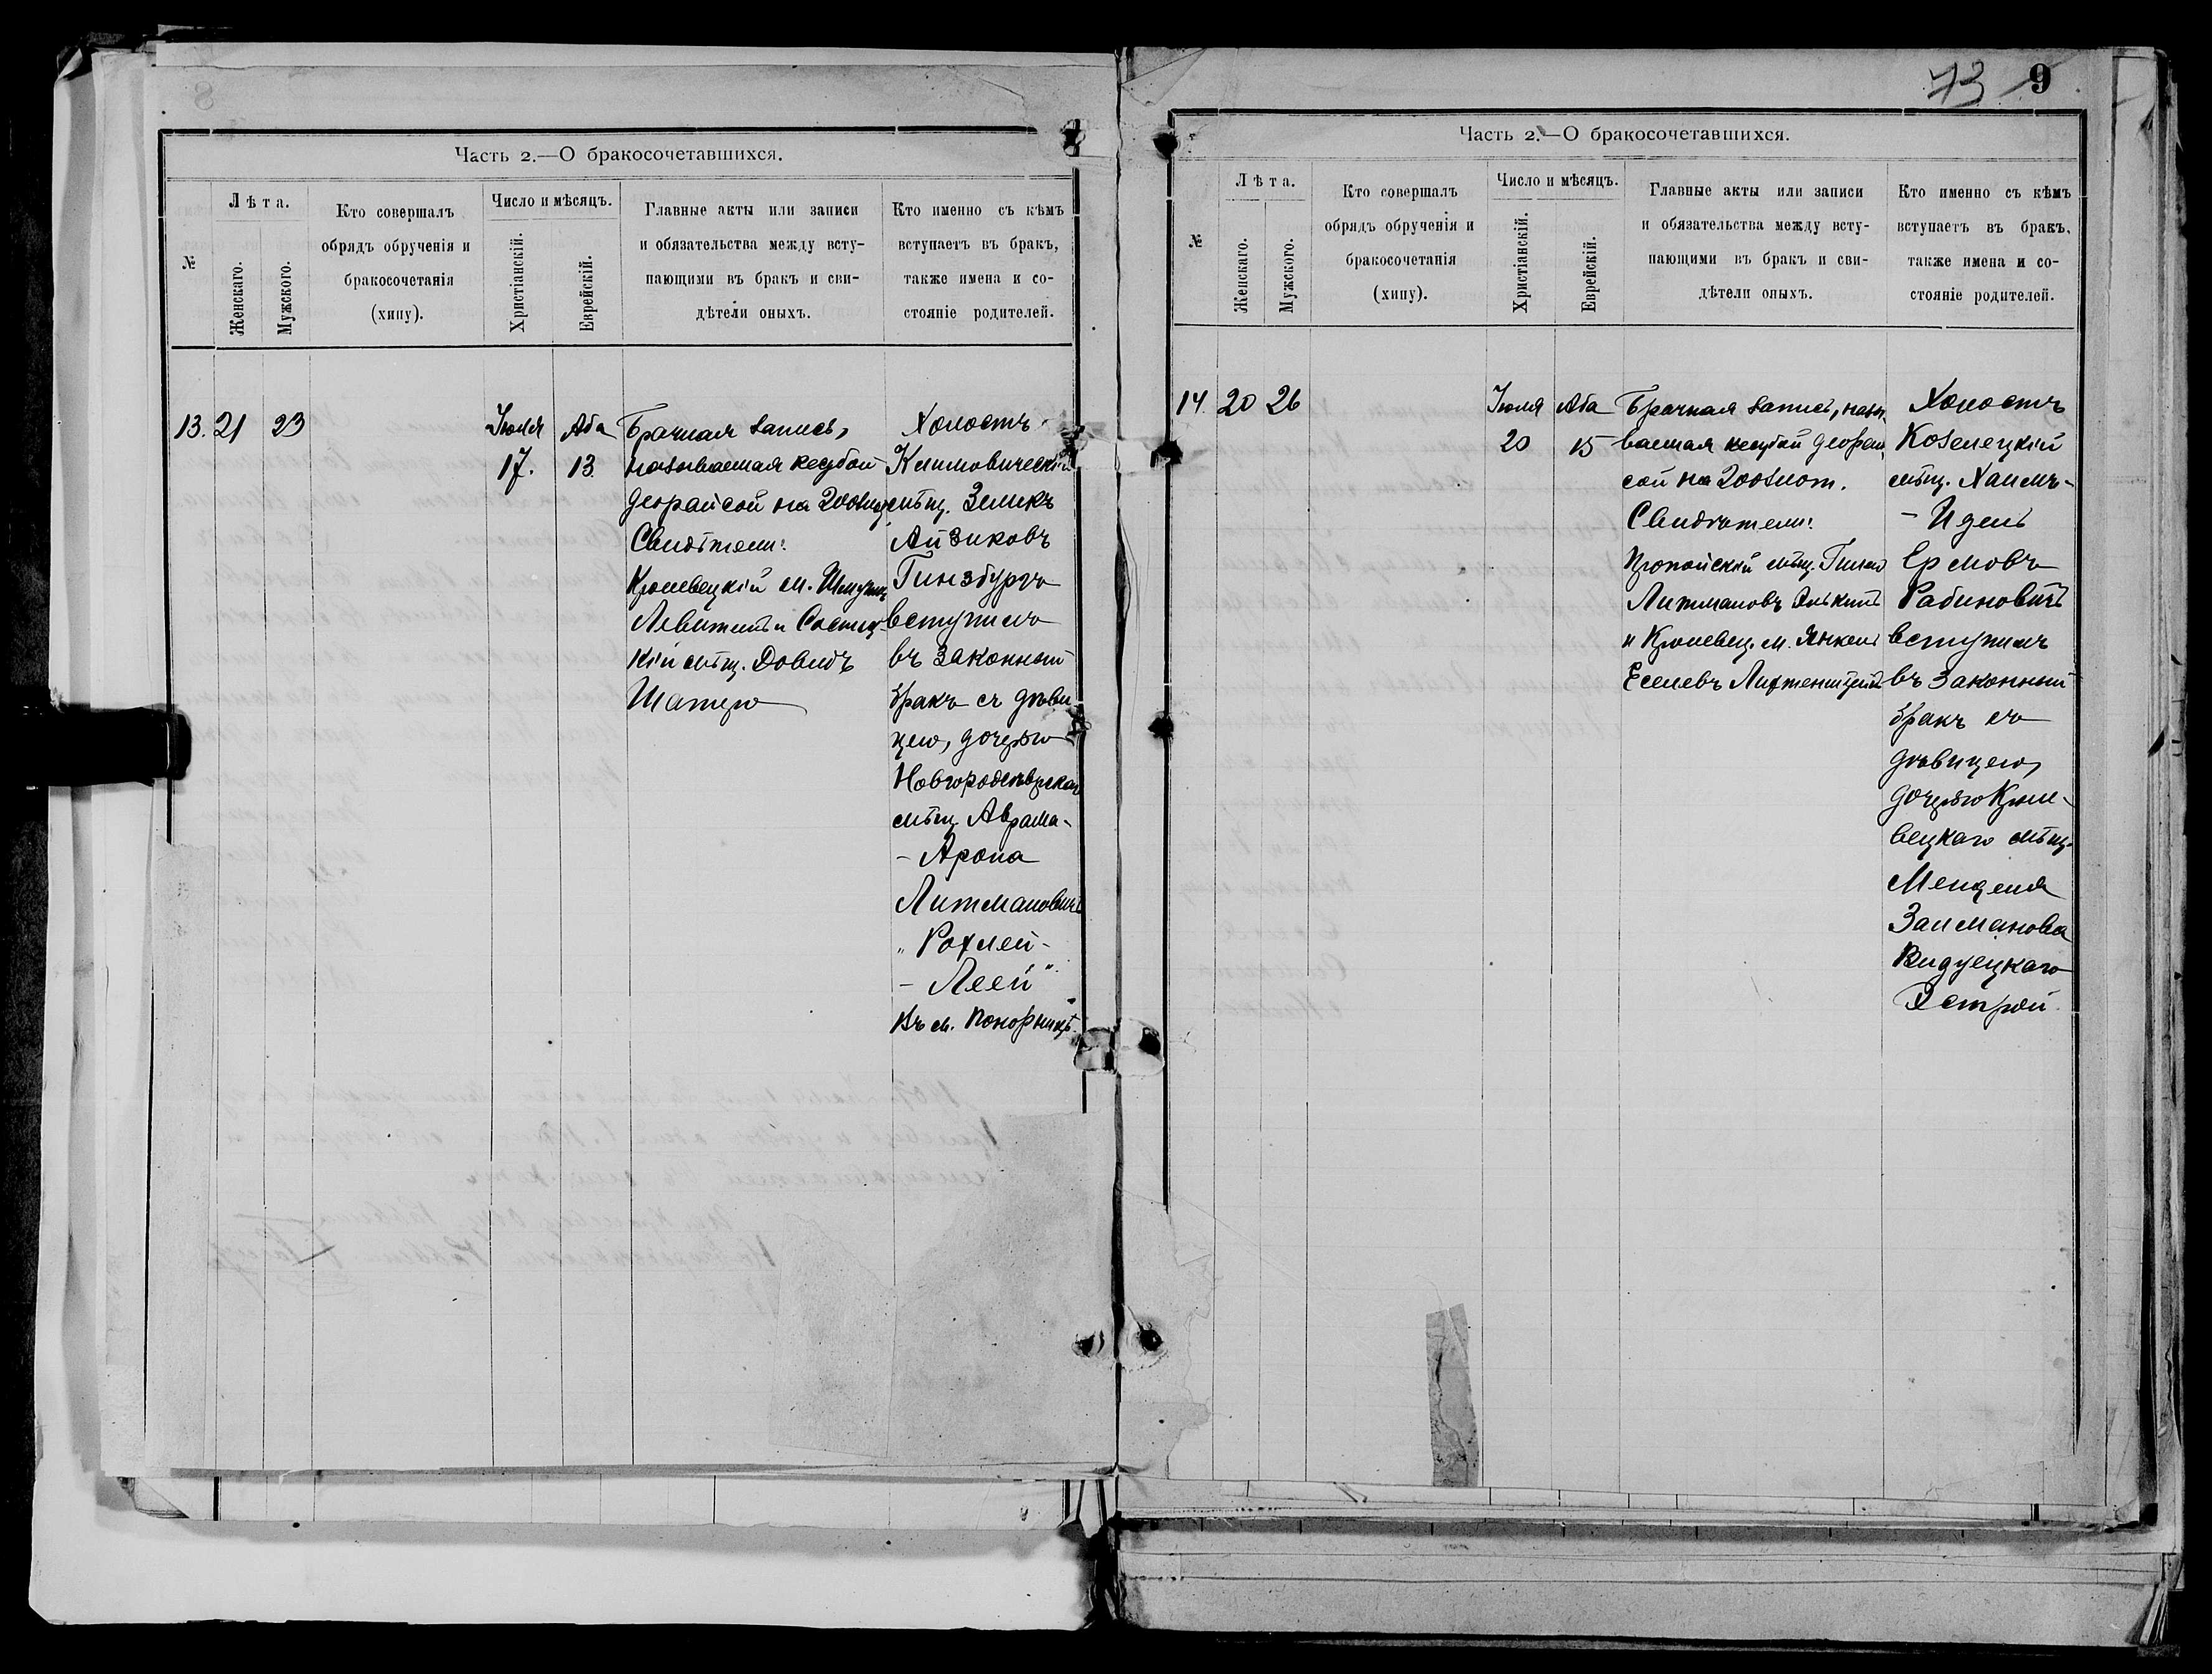 Часть 2.—О бракосочетавшихся.
№
Лѣта.
Женскаго.
Мужскаго.
Кто совершалъ
обрядъ обрученія и
бракосочетанія
(хипу).
Число и мѣсяцъ.
Христіанскій.
Еврейскій.
Главные акты или записи
и обязательства между всту-
пающими въ бракъ и сви-
дѣтели оныхъ.
Кто именно съ кѣмъ
вступаетъ въ бракъ,
также имена и со-
стояніе родителей.
13. 21 23
Іюля
17.
Аба
13
Брачная запись,
называемая кесубой
деорайсой на 200 злот
Свидѣтели:
Кролевецкій м.
Левитинъ и Сосниц-
кій мѣщ. Довидъ
Шапиро
Холостъ
Климовическій
мѣщ. Зеликъ
Айзиковъ
Гинзбургъ
вступилъ
въ законный
бракъ съ дѣви
цею, дочерью
Новгородсѣверскаго
мѣщ. Аврама-
- Арона
Литмановичъ
„Рохлей-
- Леей"
Въ м. Понорницѣ.
73 9
Часть 2.—О бракосочетавшихся.
№
Лѣта.
Женскаго.
Мужского.
Кто совершалъ
обрядъ обрученія и
бракосочетанія
(хипу).
Число и мѣсяцъ.
Христіанскій.
Еврейскій.
Главные акты или записи
и обязательства между всту-
пающими въ бракъ и сви-
дѣтели оныхъ.
Кто именно съ кѣмъ
вступаетъ въ бракъ,
также имена и со-
стояніе родителей.
14. 20 26
Іюля
20
Аба
15
Брачная запись, назы
ваемая кесубой деорай
сой на 200 злот.
Свидѣтели:
Пропойскій мѣщ.
Литмановъ Элькинъ
и Кролевец. м. Янкель
Еселевъ Лихтенштейнъ
Холостъ
Козелецкій
мѣщ. Хаимъ-
- Идель
Ермовъ
Рабиновичъ
вступилъ
въ законный
бракъ съ
дѣвицею,
дочерью Кроле-
вецкаго мѣщ.
Менделя
Залманова
Видуецкаго
Эстрой.